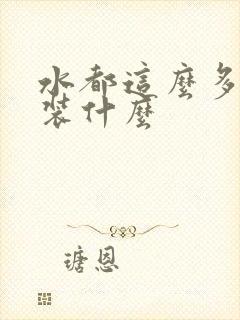 水都這麼多
裝什麼
瑭恩